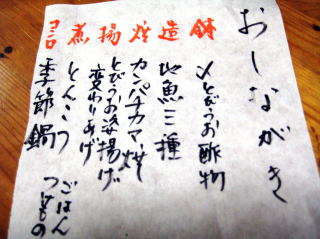 おしながき
鉢 〆とびうお酢物
造 地魚三種
焼 カンパチカマ焼
揚 とびうお姿揚げ
変わりあげ
煮 とんこつ
季節鍋
ごはん
つけもの